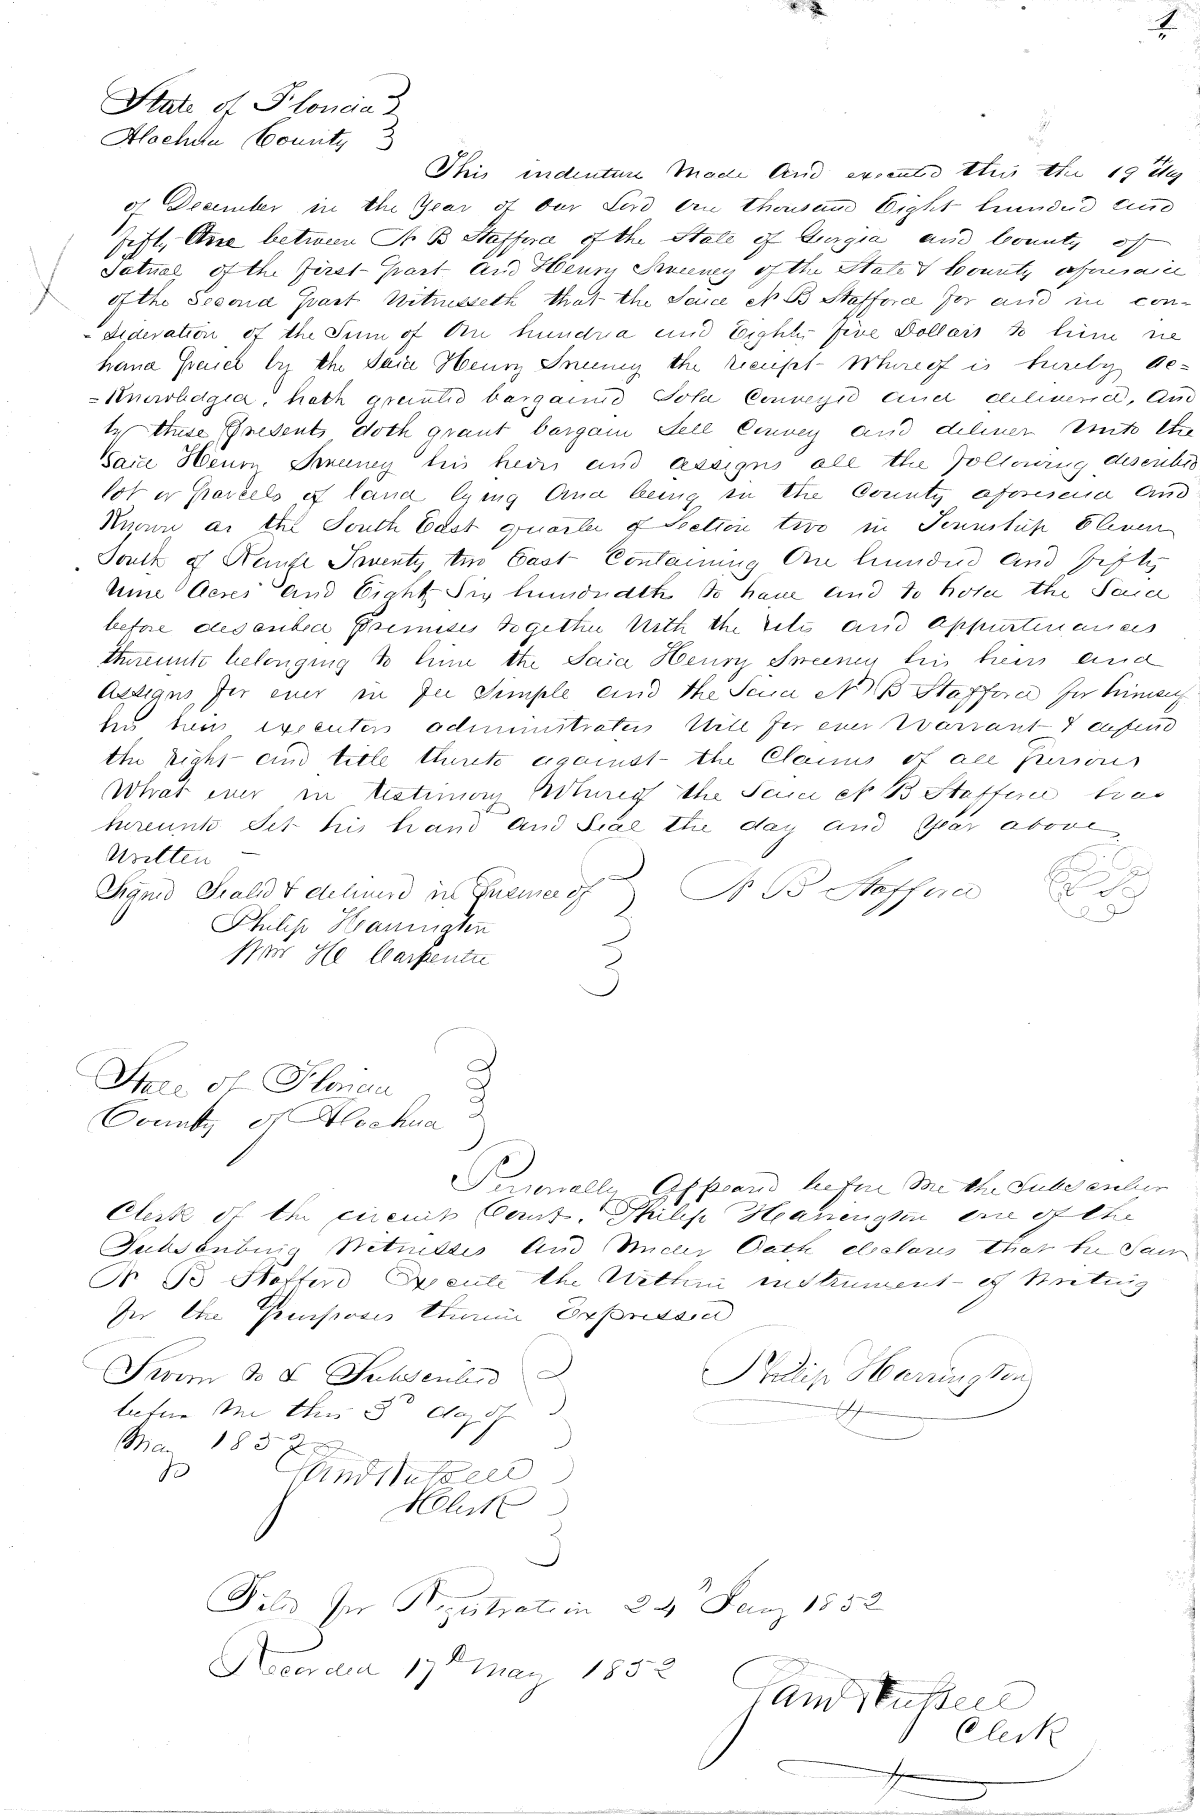 1
State of Florida
Alachua County
This indenture Made And executed this the 19th day
of December in the Year of our Lord One thousand Eight hundred and
fifty One between N B Stafford of the State of Georgia and County of
Tatnal of the first part And Henry Sweeney of the State & County aforesaid
of the Second part Witnesseth that the Said N B Stafford for and in con-
-sideration of the Sum of One hundred and Eighty five Dollars to him in
hand paid by the Said Henry Sweeney the receipt Whereof is hereby Ac=
=Knowledged, hath granted bargained Sold Conveyed and delivered, And
by these Presents doth grant bargain Sell Convey and deliver Unto the
Said Henry Sweeney his heirs and assigns all the following described
lot or parcels of land lying And being in the County aforesaid And
Known as the South East quarter of Section two in Township Eleven
South of Range Twenty two East Containing One hundred And fifty
Nine Acres and Eighty Six hundredths to have and to hold the Said
before described premises together With the rites and appurtenances
thereunto belonging to him the Said Henry Sweeney his heirs and
Assigns for ever in fee Simple and the Said N B Stafford for himself
his heirs executors administrators Will for ever Warrant & defend
the right and title thereto against the Claims of all persons
What ever in testimony Whereof the Said N B Stafford has
hereunto Set his hand And Seal the day and Year above
Written
Signed Seald & deliverd in Presence of N B Stafford
Philip Harrington
Wm H Carpenter
State of Florida
County of Alachua
Personally Appeard before Me the Subscriber
Clerk of the circuit Court, Philip Harrington one of the
Subscribing Witnesses And Under Oath declares that he Saw
N B Stafford Execute the Within instrument of Writing
for the purposes therein Expressed
Sworn to & Subscribed Philip Harrington
before Me this 3d day of
May 1852
Clerk
Filed for Registration 24th Jany 1852
Recorded 17th May 1852
Clerk